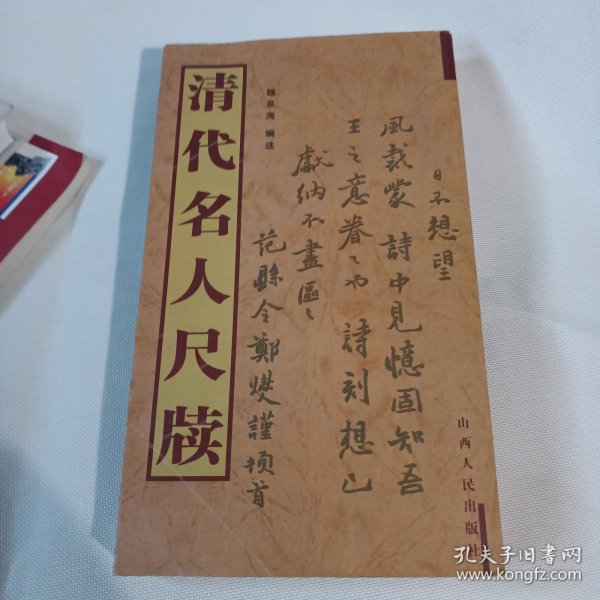 清代名人尺牍
魏泉海 编选
日不想望
風載蒙 詩中見憶固知吾
王之意眷〻也 詩刻想已
獻納不盡區〻
范縣令鄭燮謹頓首
山西人民出版社
孔夫子旧书网
www.kongfz.com